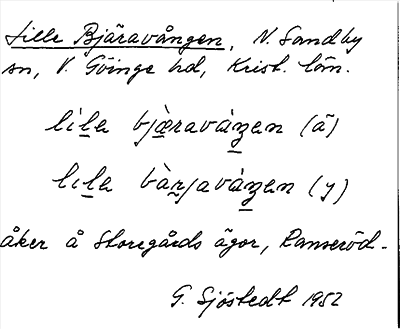 Lille Bjäravången, N. Sandby
sn, V. Göinge hd, Krist. län.
lìla bjæravàŋen (ä)
lıla bàrjavàŋen (y)
åker å Storegårds ägor, Ranseröd.
G. Sjöstedt 1952